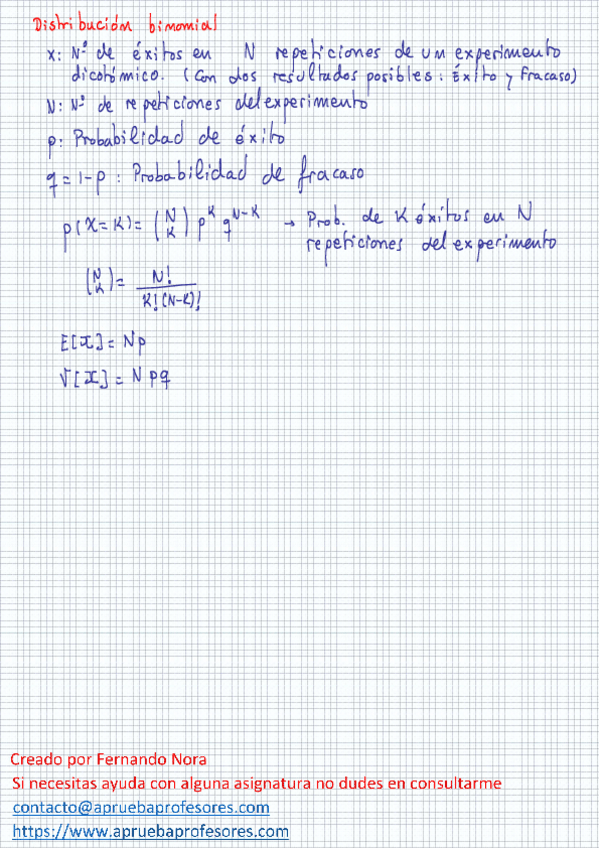 Distribución binomial
X: Nº de éxitos en N repeticiones de un experimento
dicotómico. (Con dos resultados posibles: Éxito y Fracaso)
N: Nº de repeticiones del experimento
p: Probabilidad de éxito
q = 1-p : Probabilidad de fracaso
p(X=K) = (N K) p^K q^(N-K) → Prob. de K éxitos en N
repeticiones del experimento
(N K) = N! / K!(N-K)!
E[X] = Np
V[X] = Npq
Creado por Fernando Nora
Si necesitas ayuda con alguna asignatura no dudes en consultarme
contacto@apruebaprofesores.com
https://www.apruebaprofesores.com